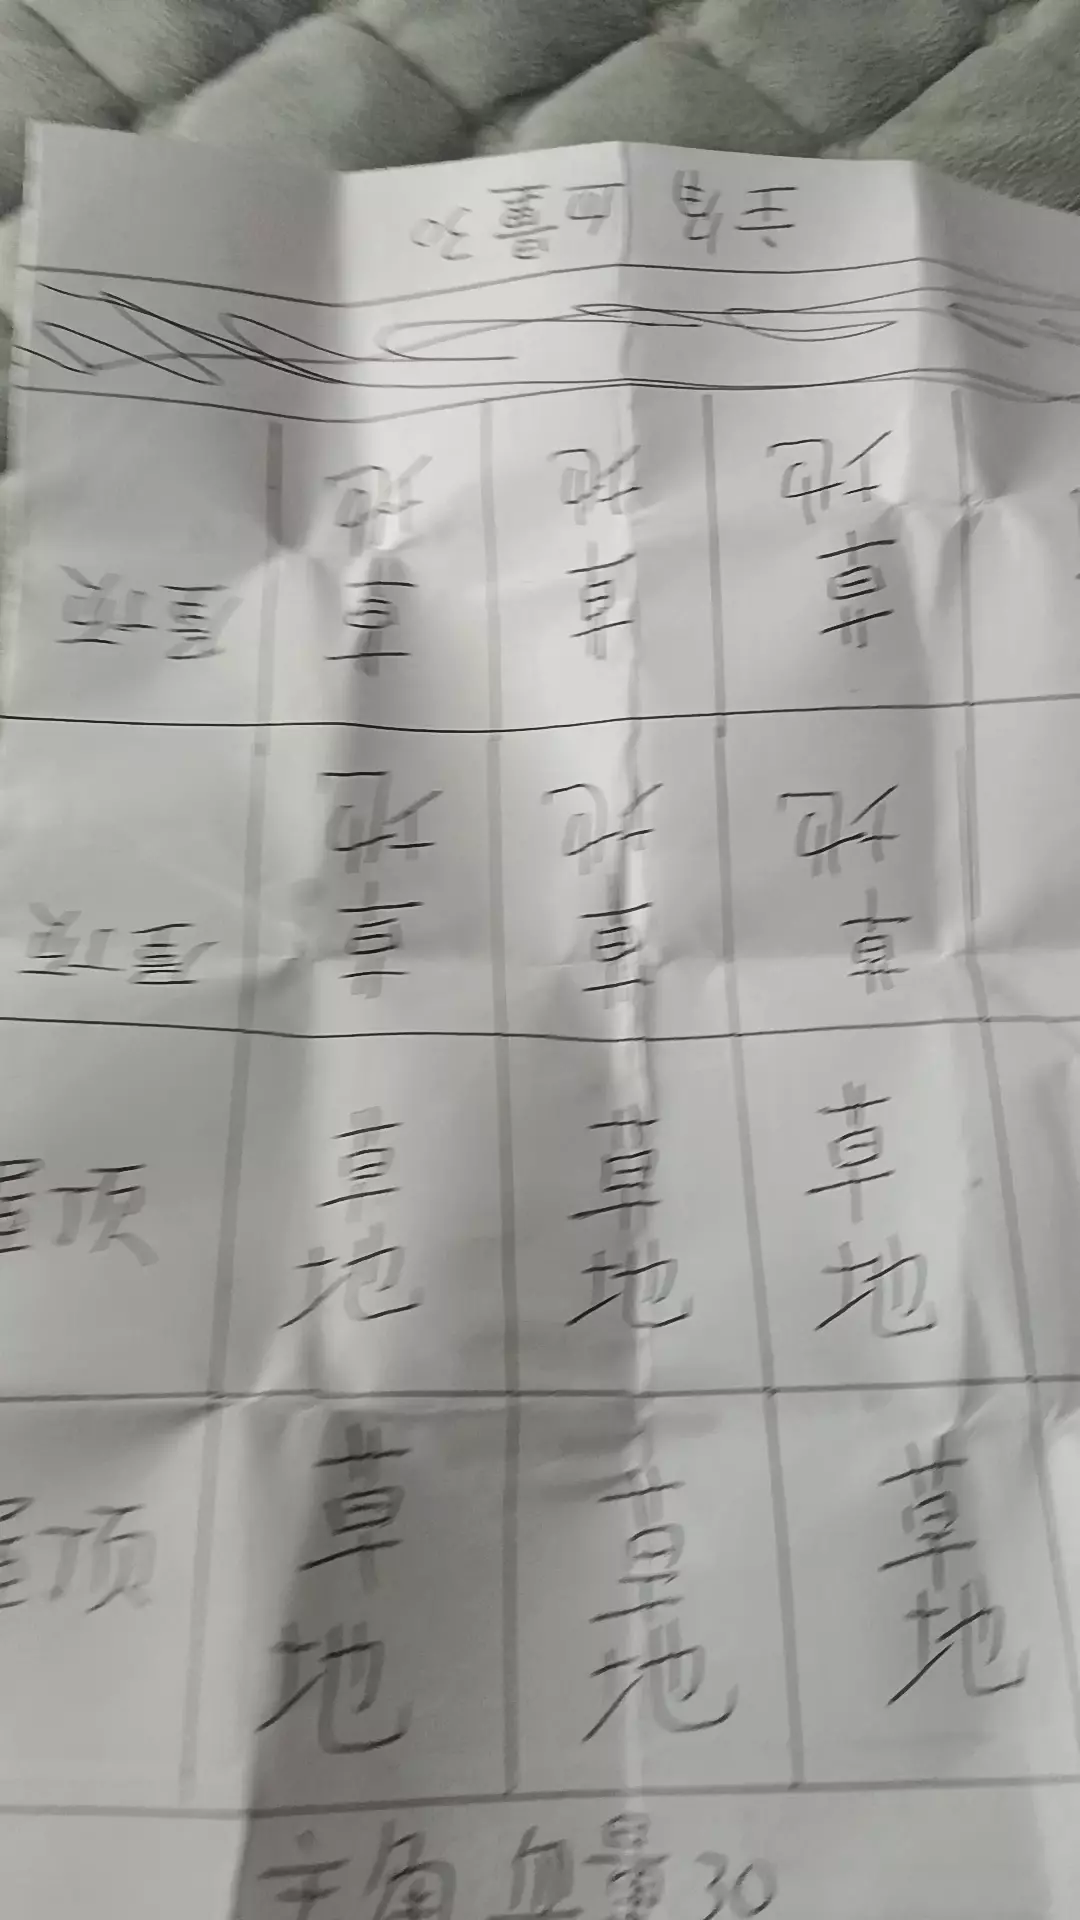 主角 血量30
屋顶 草地 草地 草地
屋顶 草地 草地 草地
屋顶 草地 草地 草地
屋顶 草地 草地 草地
主角 血量30